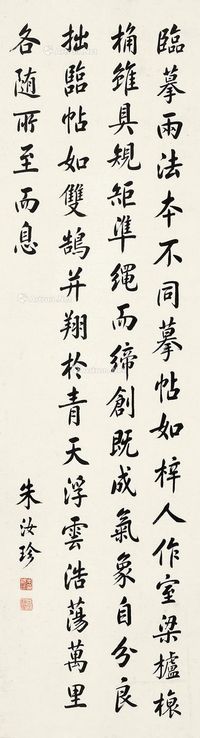 臨摹兩法本不同摹帖如梓人作室梁櫨榱
桷雖具規矩準繩而締創既成氣象自分良
拙臨帖如雙鵠并翔於青天浮雲浩蕩萬里
各随所至而息
朱汝珍